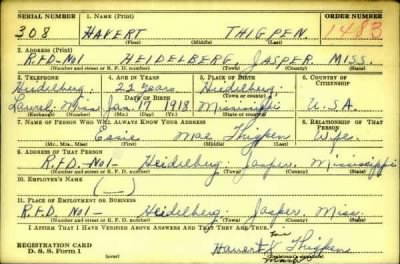 SERIAL NUMBER 1. NAME (Print) ORDER NUMBER
308 HAVERT THIGPEN 1483
(First) (Middle) (Last)
2. ADDRESS (Print)
R.F.D-NO1 HEIDELBERG, JASPER, MISS.
(Number and street or R. F. D. number) (Town) (County) (State)
3. TELEPHONE 4. AGE IN YEARS 5. PLACE OF BIRTH 6. COUNTRY OF CITIZENSHIP
Heidelberg, 22 years. Heidelberg.
DATE OF BIRTH (Town or county)
Laurel, Miss Jan. 17, 1918 Mississippi U.S.A
(Exchange) (Number) (Mo.) (Day) (Yr.) (State or country)
7. NAME OF PERSON WHO WILL ALWAYS KNOW YOUR ADDRESS 8. RELATIONSHIP OF THAT PERSON
Essie Mae Thigpen Wife.
(Mr., Mrs., Miss) (First) (Middle) (Last)
9. ADDRESS OF THAT PERSON
R.F.D. - No1 - Heidelberg, Jasper, Mississippi
(Number and street or R. F. D. number) (Town) (County) (State)
10. EMPLOYER'S NAME
(—)
11. PLACE OF EMPLOYMENT OR BUSINESS
R.F.D. No1 - Heidelberg, Jasper, Miss.
(Number and street or R. F. D. number) (Town) (County) (State)
I AFFIRM THAT I HAVE VERIFIED ABOVE ANSWERS AND THAT THEY ARE TRUE.
his
REGISTRATION CARD Havert X Thigpen
D. S. S. Form 1 (over) mark (Registrant's signature)